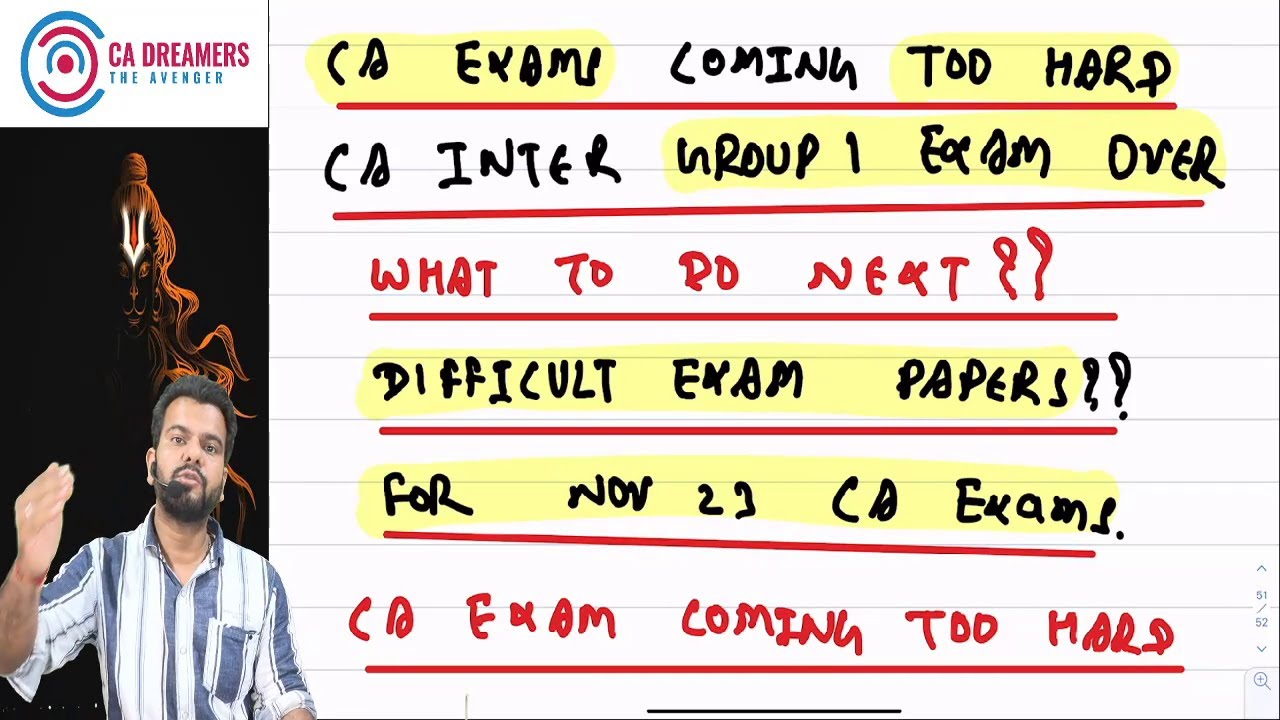 CA DREAMERS
THE AVENGER
CA EXAMS COMING TOO HARD
CA INTER GROUP 1 EXAM OVER
WHAT TO DO NEXT??
DIFFICULT EXAM PAPERS??
FOR NOV 23 CA Exams.
CA EXAM COMING TOO HARD
51
/
52